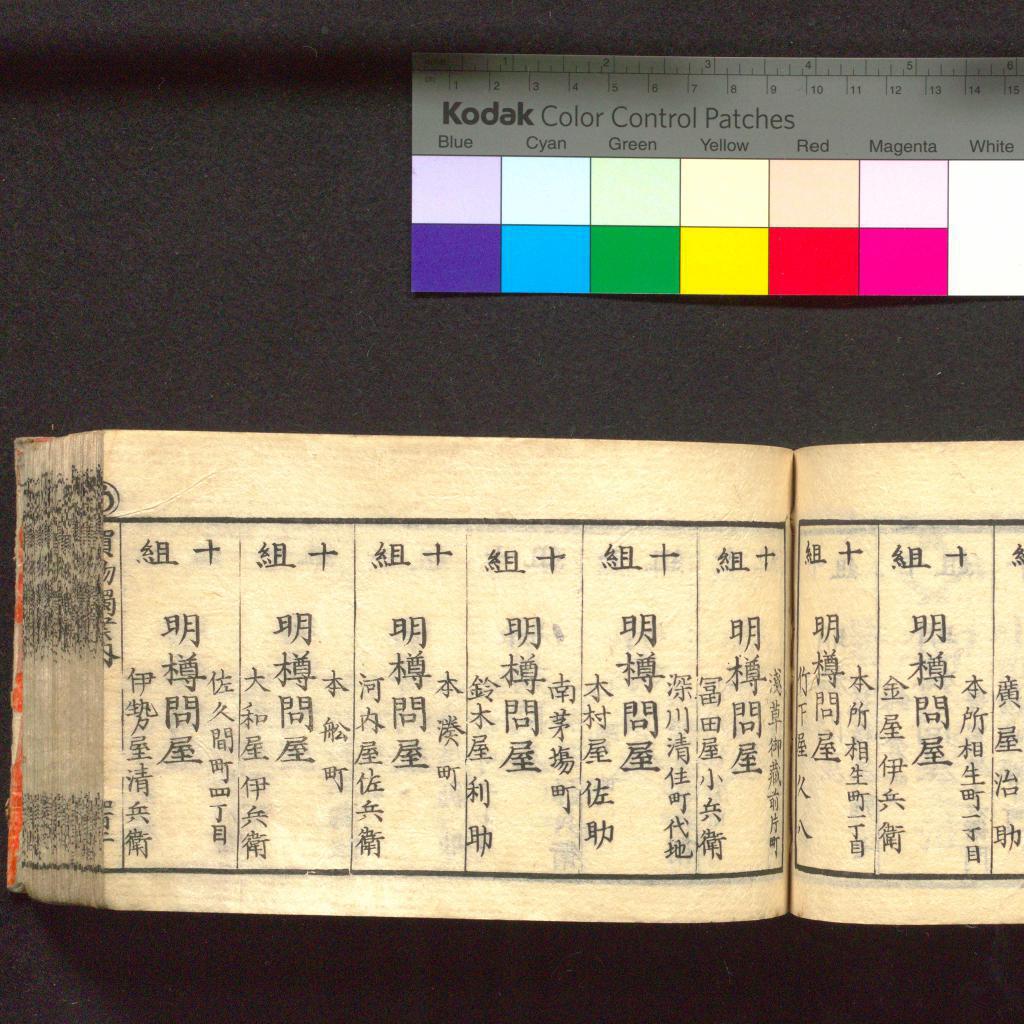 1 2 3 4 5 6
1 2 3 4 5 6 7 8 9 10 11 12 13 14 15
Kodak Color Control Patches
Blue Cyan Green Yellow Red Magenta White
廣屋治助
十組
本所相生町一丁目
明樽問屋
金屋伊兵衛
十組
本所相生町二丁目
明樽問屋
竹下屋久八
十組
浅草御蔵前片町
明樽問屋
冨田屋小兵衛
十組
深川清住町代地
明樽問屋
木村屋佐助
十組
南茅塲町
明樽問屋
鈴木屋利助
十組
本湊町
明樽問屋
河内屋佐兵衛
十組
本舩町
明樽問屋
大和屋伊兵衛
十組
佐久間町四丁目
明樽問屋
伊勢屋清兵衛